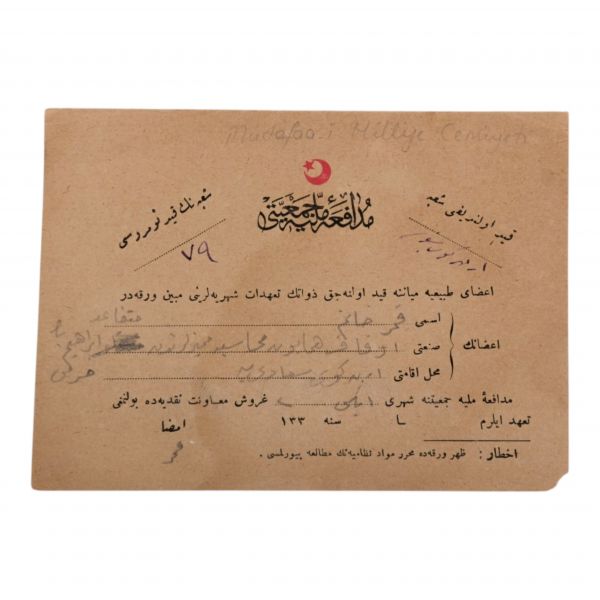 Mudafaa-i Milliye Cemiyeti
مدافعهٔ ملیه جمعیتی
قید اولندیغی شعبه
شعبه‌نك قید نومروسی
٧٩
اعضای طبیعیه میاننه قید اولنه‌جق ذواتك تعهدات شهریه‌لرینی مبین ورقه‌در
اعضانك
اسمی قمر خانم متقاعد
صنعتی اوقاف همایون محاسبه
محل اقامتی
مدافعهٔ ملیه جمعیتنه شهری ایكی غروش معاونت نقدیه‌ده بولنمغی
تعهد ایلرم ما سنه ١٣٣ امضا
قمر
اخطار : ظهر ورقه‌ده محرر مواد نظامیه‌نك مطالعه بیورلمسی .